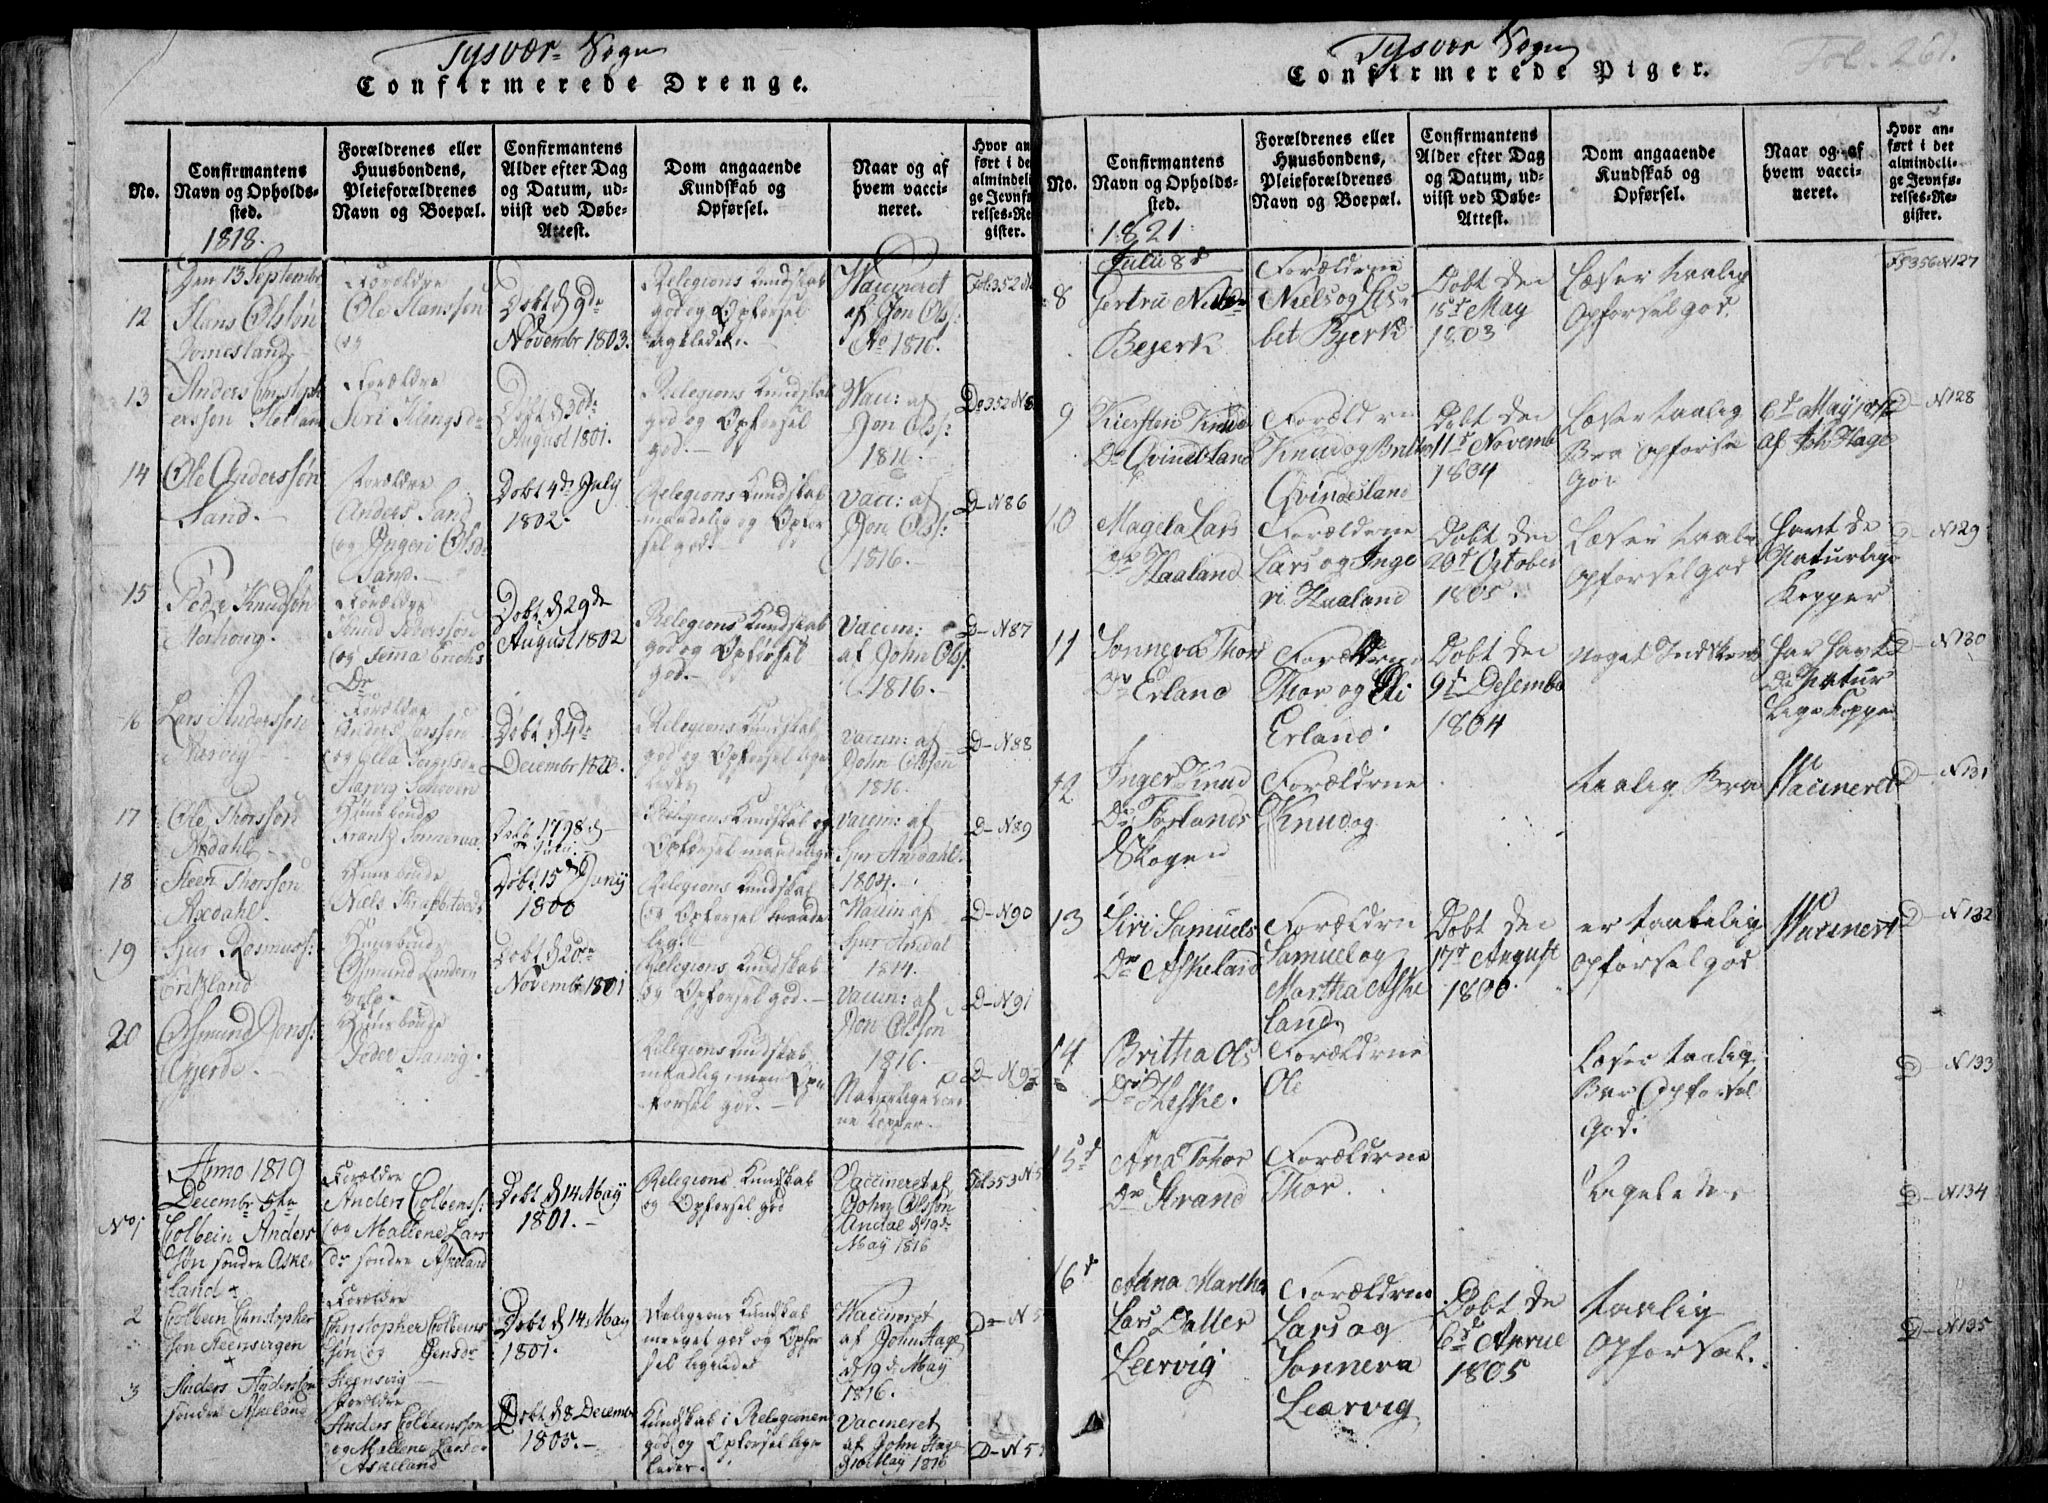 Tysvær Sogn
Confirmerede Drenge.
No.
Confirmantens
Navn og Opholds-
sted.
Forældrenes eller
Huusbondens,
Pleieforældrenes
Navn og Boepæl.
Confirmantens
Alder efter Dag
og Datum, ud-
viist ved Døbe-
Attest.
Dom angaaende
Kundskab og
Opførsel.
Naar og af
hvem vacci-
neret.
Hvor an
ført i de
almindeli
ge Jevnfø
relses-Re
gister.
1818.
Den 13 Septembr
12
Hans Olsøn
Forældre
Ole Hansøn
og
Døbt d 9de
Novembr 1803.
Religions Kundskab
god og Opførsel
ligeledes.
Vaccineret
af Jon Ols:
Ao 1816.
Fol: 352 N
13
Anders Christoph
ersøn
Forældre
Døbt d 30te
August 1801.
Religions Kundskab
god og Opførsel
god.
Vacc: af
Jon Ols:
1816.
Do 352 N 8
14
Ole Andersøn
Sand.
Forældre
Anders Sand
og Ingeri Olsdr
Sand.
Døbt 4de July
1802.
Religions Kundskab
maadelig og Opfør
sel god.
Vacc: af
Jon Ols:
1816.
D- N 86
15
Peder Knudsøn
Forældre
Døbt d 29de
August 1802
Religions Kundskab
god og Opførsel
god.
Vaccin:
af John Ols:
1816.
D- N 87
16
Lars Andersøn
Forældre
Anders Larssøn
Døbt d 4de
Decembr
Religions Kundskab
god og Opførsel lige
ledes
Vaccin: af
John Olsøn
1816.
D- N 88
17
Ole Thorssøn
Axdahl
Huusbonde
Døbt 1798 d
Religions Kundskab og
Opførsel maadelig
Vaccin: af
Sjur Amdahl
1804.
D- N 89
18
Steen Thorssøn
Axdahl.
Huusbonde
Døbt 15 d Juny
1800
Religions Kundskab
og Opførsel maade
lig.
Vaccin af
Sjur Amdal
1814.
D- N 90
19
Sjur Rasmuss:
Huusbonde
Døbt d 20de
Novembr 1801
Religions Kundskab
og Opførsel god.
Vaccin: af
Jon Olsøn
1816.
D- N 91
20
Osmund Jonss:
Gjerde.
Huusbonde
Peder
Religions Kundskab
maadelig, men Op-
førsel god.
Naturlige
ne Kopper.
D- N 92
Anno 1819
Decembr 5te
No 1
Colbein Anders
søn søndre Aske-
land
Forældre
Anders Colbenss:
og Mallene Lars
dr søndre Askeland
Døbt d 14 May
1801.
Religions Kundskab
og Opførsel god
Vaccineret af
John Olsøn
Amdal d 19de
May 1816
Fol 353 N 5
2
Colbein Christopher
søn Steensvigen
Forældre
Christopher Colbens
søn og Jensdr
Steensvig
Døbt d 14 May
1801.
Religions Kundskab
meeget god og Opfør
sel ligeledes
Vaccineret
af John Hage
d 19de May
1816.
Do N 5
3
Anders Andersøn
søndre Askeland
Forældre
Anders Colbenssøn
og Mallene Larsdr
Askeland
Døbt d 8 Decembr
1805.
Kundskab i Religionen
god og Opførsel lige
ledes.
Vaccineret
af John Hage
d 10 May 1816
D- N 5
Tysvær Sogn
Confirmerede Piger.
Fol. 261.
No.
Confirmantens
Navn og Opholds-
sted.
Forældrenes eller
Huusbondens,
Pleieforældrenes
Navn og Boepæl.
Confirmantens
Alder efter Dag
og Datum, ud-
viist ved Døbe-
Attest.
Dom angaaende
Kundskab og
Opførsel.
Naar og af
hvem vacci-
neret.
Hvor an-
ført i det
almindeli-
ge Jevnfø-
relses-Re-
gister.
1821
Julii 8d
8
Gertru Niels
Bejerk
Forældrne
Niels og Lis
bet Bjerk
Døbt den
15d May
1803
Læser taalig
Opførsel god.
Fol 356 N 127
9
Kiersten Knud
Dr Qvindesland
Forældrne
Knud og Britha
Qvindesland
Døbt den
11d Novemb
1804
Læser taalig
Bra Opførsel
God
6d May 1812
af Joh Hage
D- N 128
10
Magela Lars
Dr Haaland
Forældrene
Lars og Inge
ri Haaland
Døbt den
29d October
1805.
Læser taalig
Opførsel god
Havt de
Naturlige
Kopper
D- N 129
11
Sonneva Thors
Dr Erland
Forældrene
Thor og Eli
Erland.
Døbt den
9d Desembr
1804
Noget Indskrenk
Har Havt
de Natur
lige Kopper
D- N 130
12
Inger Knud
Dr Førlands
Skogen
Forældrne
Knud og
taalig Bra
Vacineret
D- N 131
13
Siri Samuels
Dr Askeland
Forældrn
Samuel og
Martha Aske
land
Døbt den
17d August
1806.
er taalelig
Opførsel god
Vacinert
D- N 132
14
Britha Ols
Dr Heske.
Forældrne
Ole
Læser taalig
Bra Opførsel
God.
D- N 133
15d
Ana Tohor
Dr Strand
Forældrne
Thor
Ligeledes
D- N 134
16d
Anna Martha
Lars Datter
Leervig
Forældrne
Lars og
Sonneva
Leervig
Døbt de
6d April
1805
taalig
Opførsel.
D- N 135